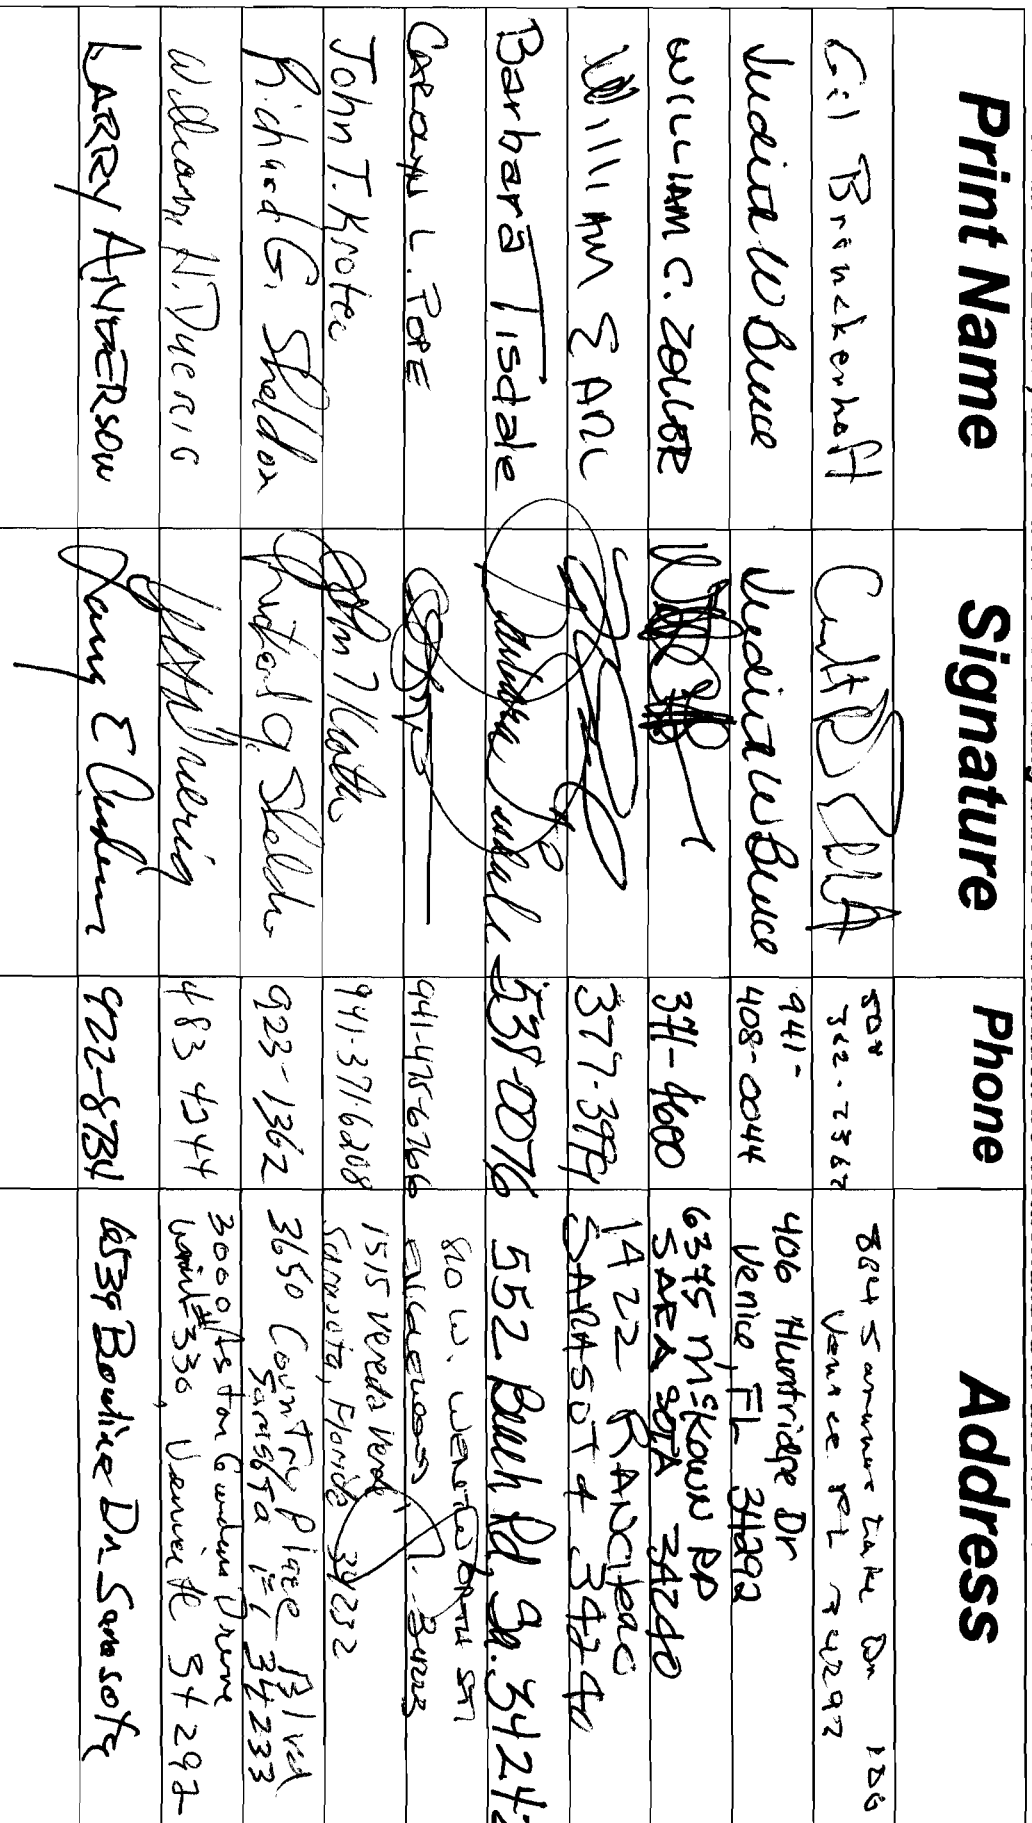 Print Name Signature Phone Address
Gil 508
Venice FL 34292
Judith W Bruce Judith W Bruce 941-
408-0044 406 Huntridge Dr
Venice, FL 34292
WILLIAM C. ZOLLER 371-4600 6375 McKown RD
SARASOTA 34240
William EARL 377-3994 1422 RANCHERO
SARASOTA 34240
Barbara Tisdale Barbara Tisdale 538-0076 552 Beach Rd, Sa. 3424
CAROLYN L. POPE 941-475-6766 810 W. WENTWORTH ST
ENGLEWOOD
John T. Krotec 941-371-6208 1515 Vereda Verde
Sarasota, Florida 34232
Richard G. Sheldon Richard G. Sheldon 923-1362 3650 Country Place Blvd
Sarasota FL 34233
William N. Duerig 483 4244 3000 Aston Gardens Drive
Unit# 330, Venice FL 34292
LARRY ANDERSON Larry E Anderson 922-8734 6539 Dr. Sarasota